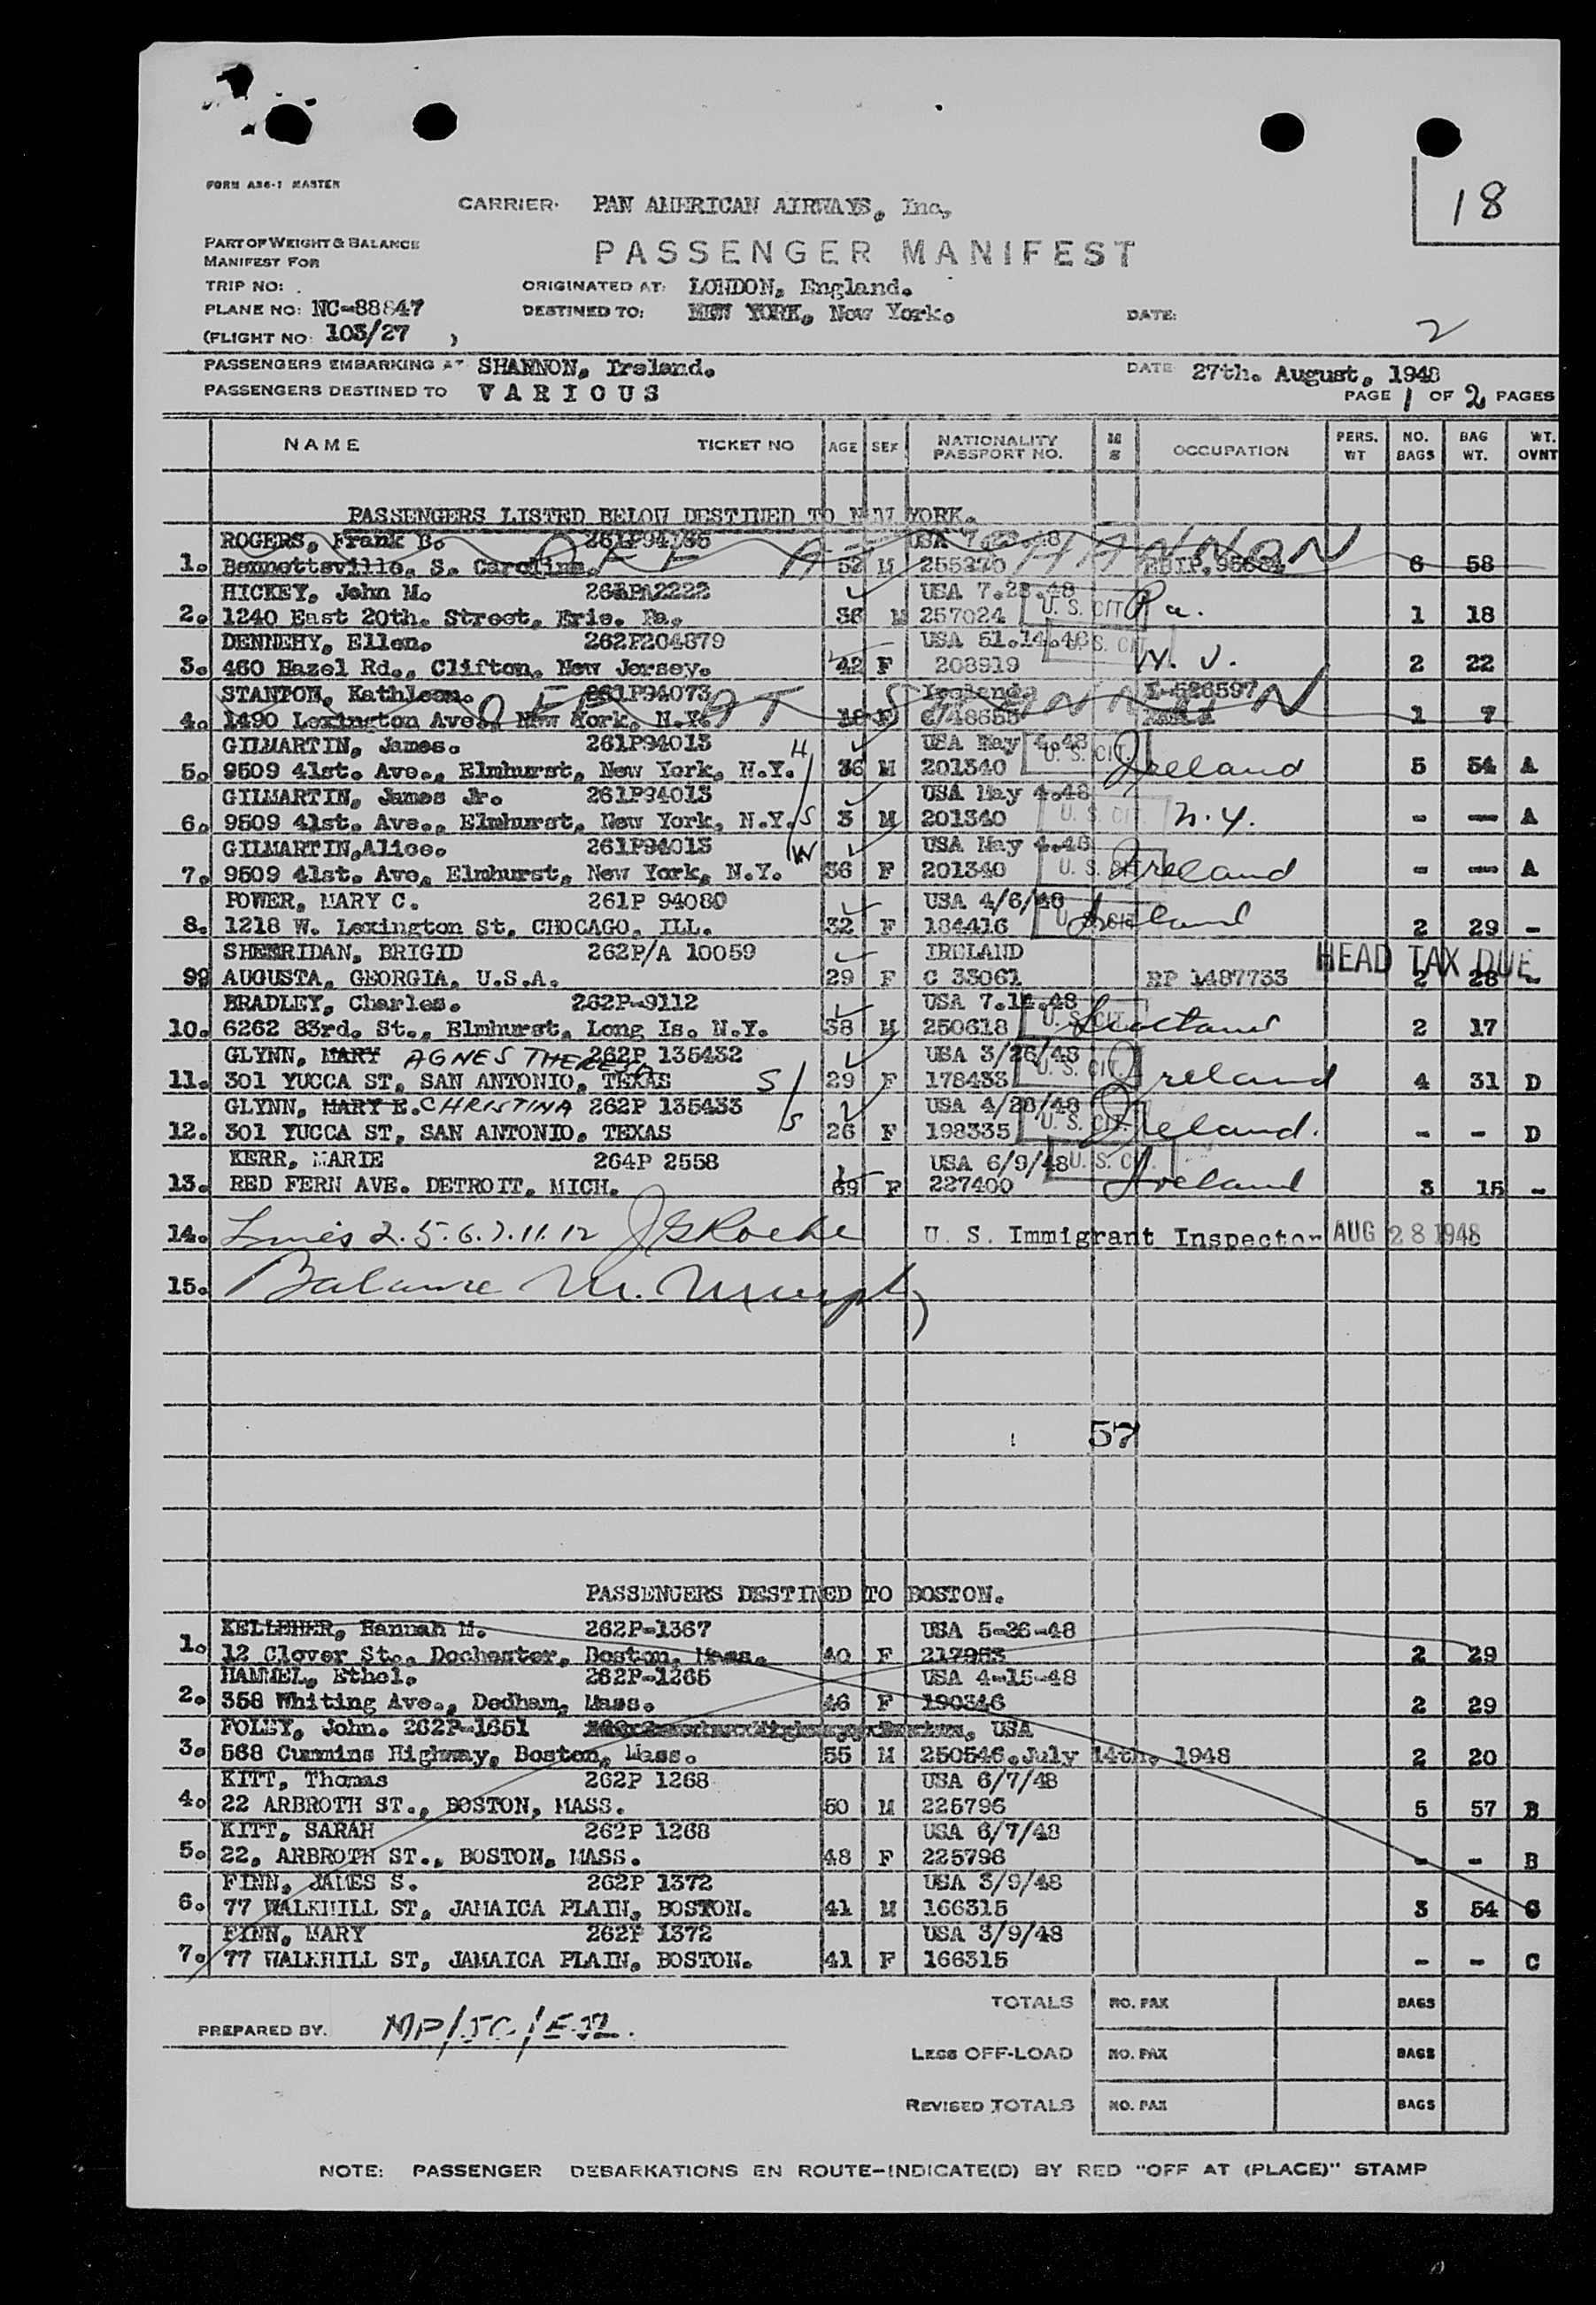 18
FORM A26-1 MASTER
CARRIER: PAN AMERICAN AIRWAYS, Inc,
PART OF WEIGHT & BALANCE
MANIFEST FOR
PASSENGER MANIFEST
TRIP NO:
ORIGINATED AT: LONDON, England.
PLANE NO: NC-88847
DESTINED TO: NEW YORK, New York.
DATE:
(FLIGHT NO: 103/27 )
2
PASSENGERS EMBARKING AT SHANNON, Ireland.
DATE 27th. August, 1948
PASSENGERS DESTINED TO VARIOUS
PAGE 1 OF 2 PAGES
NAME TICKET NO AGE SEX NATIONALITY PASSPORT NO. M S OCCUPATION PERS. WT NO. BAGS BAG WT. WT. OVNT
PASSENGERS LISTED BELOW DESTINED TO NEW YORK.
ROGERS, Frank B. USA 7.23.48
OFF AT SHANNON
1. Bennettsville, S. Carolina. 52 M 6 58
HICKEY, John M. USA 7.23.48
2. 1240 East 20th. Street, Erie. Pa. 36 M 257024 U. S. CIT. Pa. 1 18
DENNEHY, Ellen. 262P204879 USA U. S. CIT.
3. 460 Hazel Rd., Clifton, New Jersey. 42 F 208919 N. J. 2 22
STANTON, Kathleen. 261P94073 Ireland. I-526597
OFF AT SHANNON
4. 1490 Lexington Ave. New York, N.Y. 18 F 1 7
GILMARTIN, James. 261P94013 H USA May 4.48
5. 9509 41st. Ave., Elmhurst, New York, N.Y. 36 M 201340 U. S. CIT. Ireland 5 54 A
GILMARTIN, James Jr. 261P94013 USA May 4.48
6. 9509 41st. Ave., Elmhurst, New York, N.Y. S 3 M 201340 U. S. CIT. N.Y. - - A
GILMARTIN,Alice. 261P94013 W USA May 4.48
7. 9509 41st. Ave, Elmhurst, New York, N.Y. 36 F 201340 U. S. CIT. Ireland - - A
POWER, MARY C. 261P 94080 USA 4/6/48
8. 1218 W. Lexington St, CHOCAGO, ILL. 32 F 184416 U. S. CIT. Ireland 2 29 -
SHERRIDAN, BRIGID 262P/A 10059 IRELAND HEAD TAX DUE
99 AUGUSTA, GEORGIA, U.S.A. 29 F C 33061 RP 1487733 2 28 -
BRADLEY, Charles. 262P-9112 USA 7.14.48
10. 6262 83rd. St., Elmhurst, Long Is. N.Y. 38 M 250618 U. S. CIT. Scotland 2 17
GLYNN, MARY AGNES THERESA 262P 135432 USA 3/26/48
11. 301 YUCCA ST, SAN ANTONIO, TEXAS S 29 F 178433 U. S. CIT. Ireland 4 31 D
GLYNN, MARY E. CHRISTINA 262P 135433 USA 4/28/48
12. 301 YUCCA ST, SAN ANTONIO. TEXAS S 26 F 198335 U. S. CIT. Ireland. - - D
KERR, MARIE 264P 2558 USA 6/9/48 U. S. CIT.
13. RED FERN AVE. DETROIT, MICH. 69 F 227400 Ireland 3 15 -
14. Lines 2.5.6.7.11.12 J G Roche U. S. Immigrant Inspector AUG 28 1948
15. Balance M. Murphy
57
PASSENGERS DESTINED TO BOSTON.
KELLEHER, Hannah M. 262P-1367 USA 5-26-48
1. 12 Clover St., Dochester, Boston, Mass. 40 F 217953 2 29
HAMMEL, Ethel. 262P-1265 USA 4-15-48
2. 358 Whiting Ave., Dedham, Mass. 46 F 190346 2 29
FOLEY, John. 262P-1651 USA
3. 568 Cummins Highway, Boston, Mass. 55 M 250546.July 14th. 1948 2 20
KITT, Thomas 262P 1268 USA 6/7/48
4. 22 ARBROTH ST., BOSTON, MASS. 50 M 225796 5 57 B
KITT, SARAH 262P 1268 USA 6/7/48
5. 22, ARBROTH ST., BOSTON, MASS. 48 F 225796 - - B
FINN, JAMES S. 262P 1372 USA 3/9/48
6. 77 WALKHILL ST, JAMAICA PLAIN, BOSTON. 41 M 166315 3 54 C
FINN, MARY 262P 1372 USA 3/9/48
7. 77 WALKHILL ST, JAMAICA PLAIN, BOSTON. 41 F 166315 - - C
TOTALS NO. PAX BAGS
PREPARED BY.
LESS OFF-LOAD NO. PAX BAGS
REVISED TOTALS NO. PAX BAGS
NOTE: PASSENGER DEBARKATIONS EN ROUTE-INDICATE(D) BY RED "OFF AT (PLACE)" STAMP